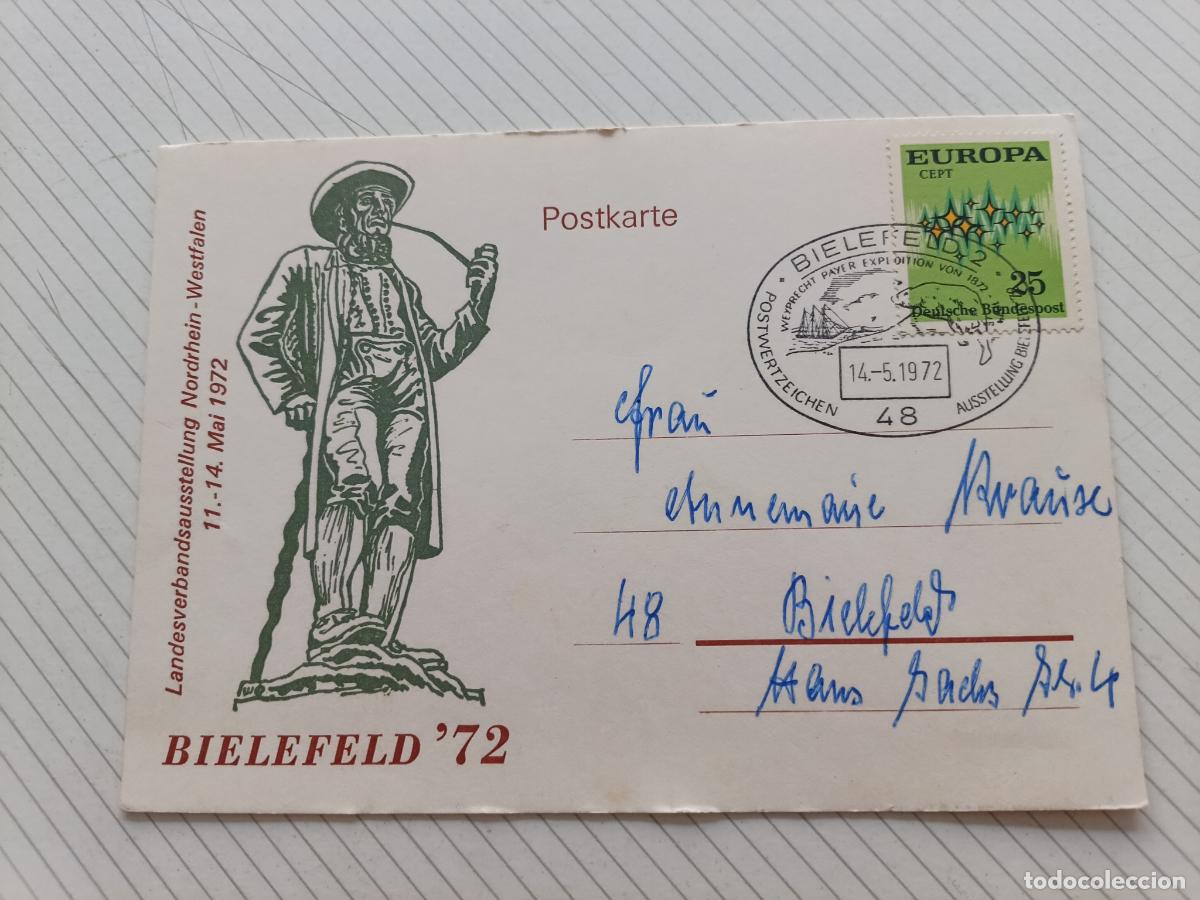 Landesverbandsausstellung Nordrhein-Westfalen
11.-14. Mai 1972
BIELEFELD '72
Postkarte
EUROPA
CEPT
25
Deutsche Bundespost
BIELEFELD 2
WEYPRECHT PAYER EXPEDITION VON 1872
POSTWERTZEICHEN
AUSSTELLUNG
14.-5.1972
48
Frau
Annemarie Krause
48 Bielefeld
Hans Sachs Str. 4
todocoleccion